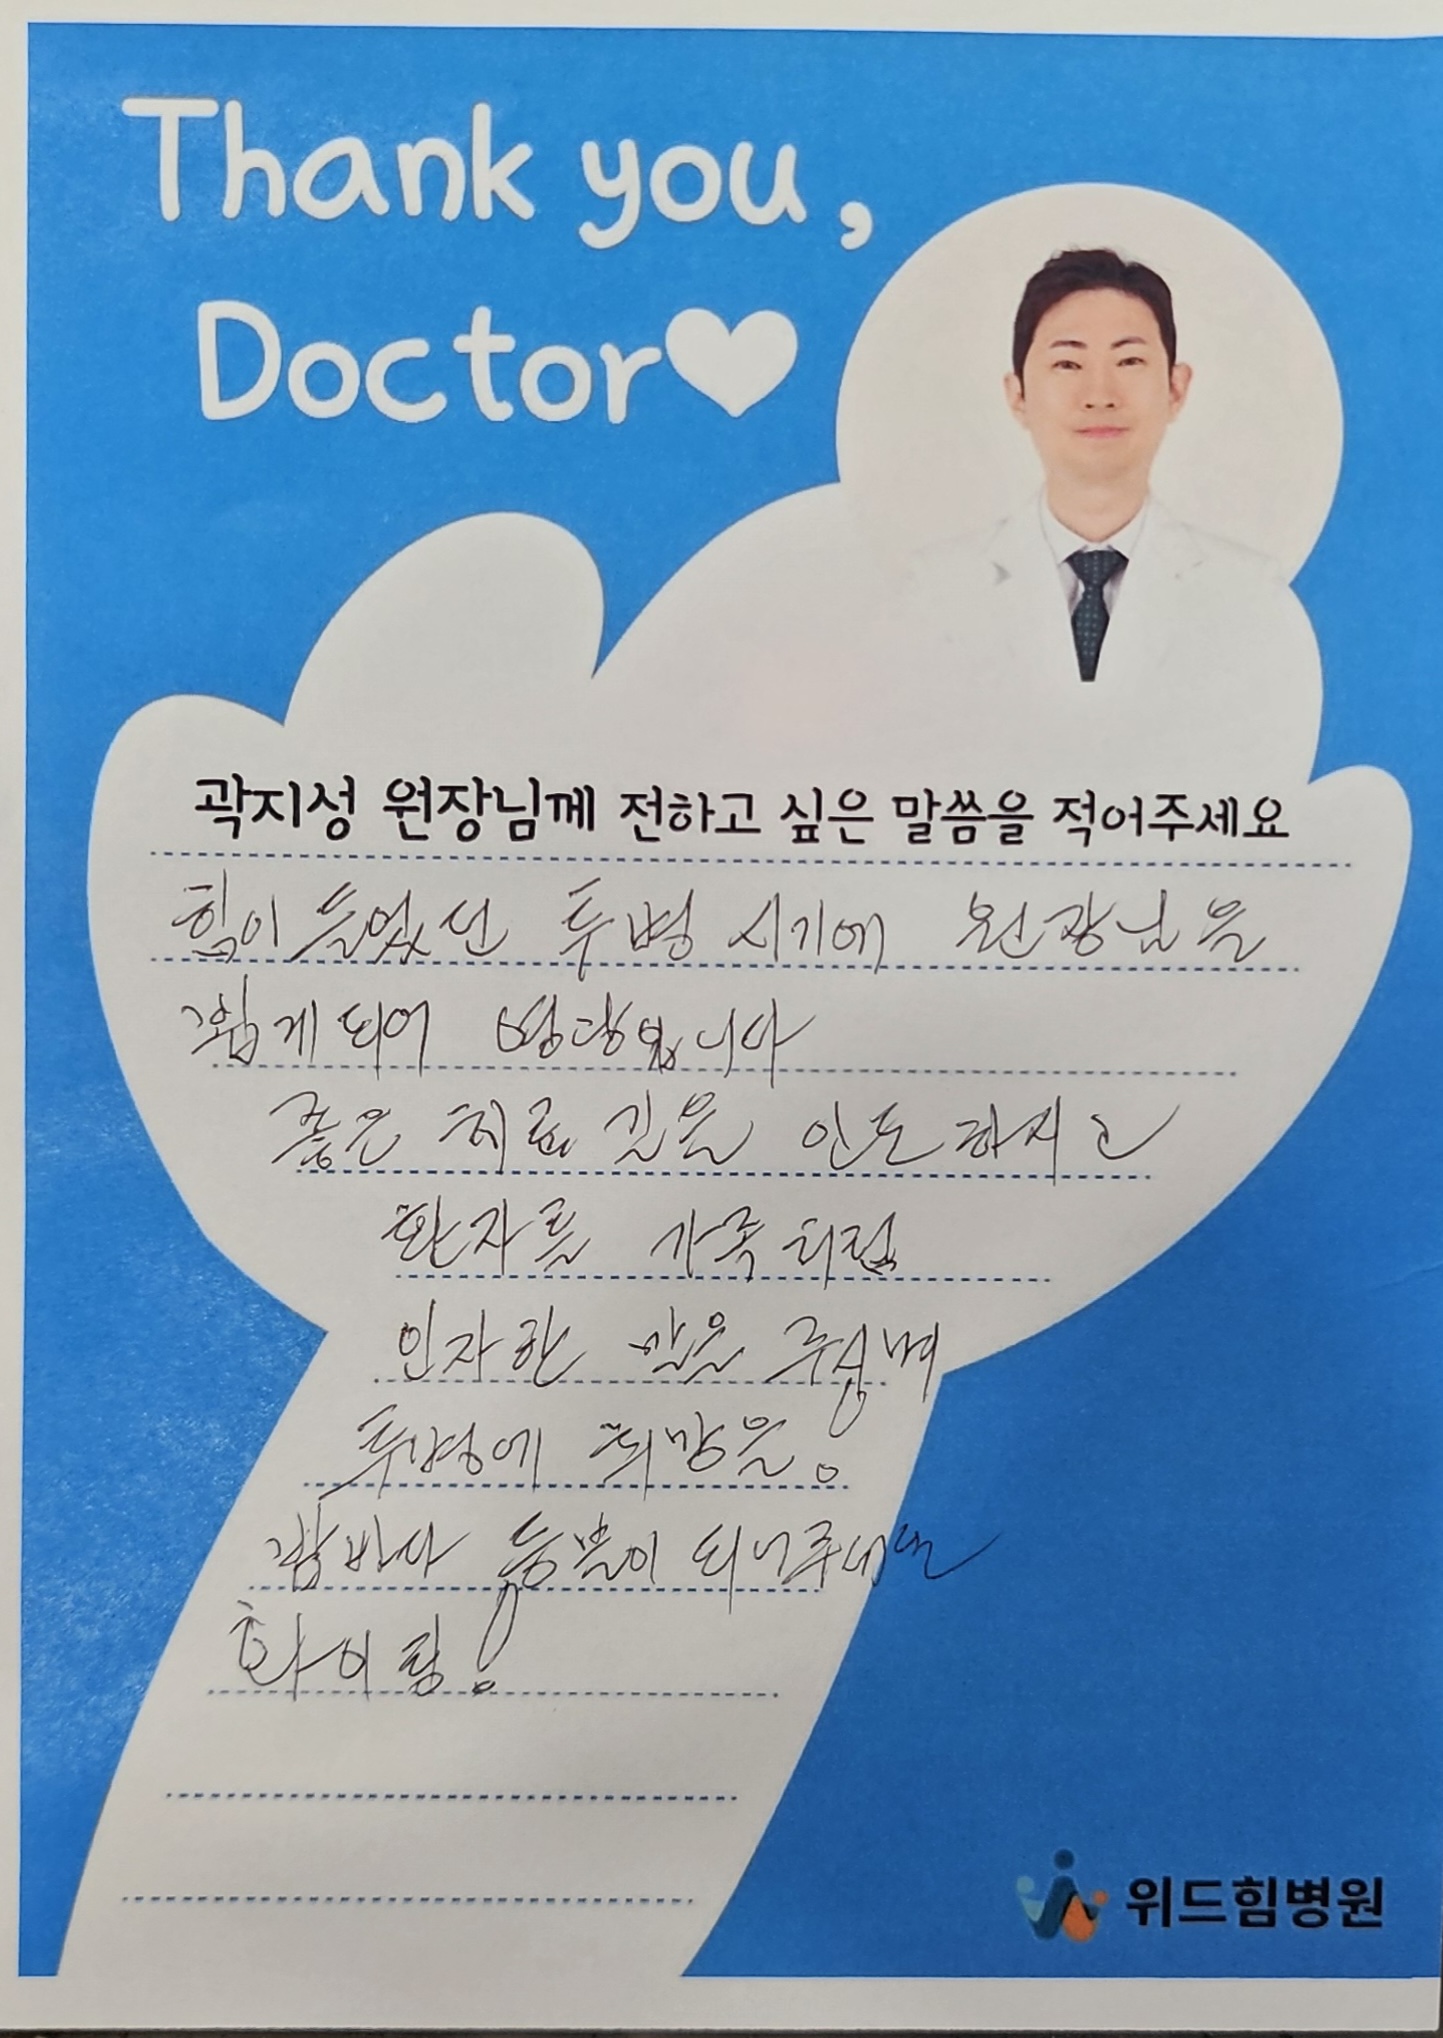 Thank you,
Doctor
곽지성 원장님께 전하고 싶은 말씀을 적어주세요
힘이 들었던 투병 시기에 원장님을
뵙게되어 영광입니다
좋은 치료 길을 인도하시고
환자를 가족처럼
인자한 말을 주시며
투병에 희망을.
등불이 되어주시는
화이팅!
위드힘병원